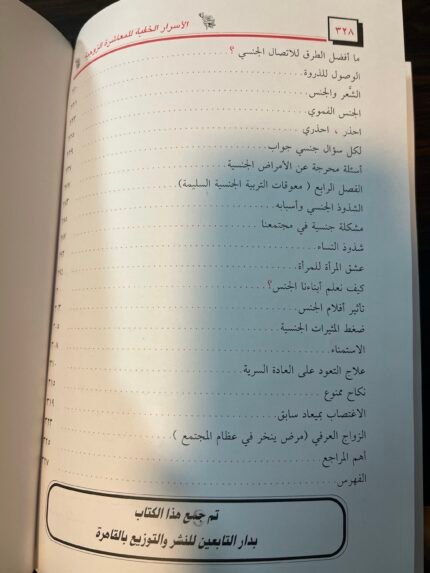 ٣٢٨
الأسرار الخفية للمعاشرة الزوجية
ما أفضل الطرق للاتصال الجنسي ؟
الوصول للذروة
الشَّعر والجنس
الجنس الفموي
احذر ، احذري
لكل سؤال جنسي جواب
أسئلة محرجة عن الأمراض الجنسية
الفصل الرابع ( معوقات التربية الجنسية السليمة)
الشذوذ الجنسي وأسبابه
مشكلة جنسية في مجتمعنا
شذوذ النساء
عشق المرأة للمرأة
كيف نعلم أبناءنا الجنس؟
تأثير أفلام الجنس
ضغط المثيرات الجنسية
الاستمناء
علاج التعود على العادة السرية
نكاح ممنوع
الاغتصاب بميعاد سابق ٣١٩
الزواج العرفي (مرض ينخر في عظام المجتمع ) ٣٢٣
أهم المراجع ٣٢٥
الفهرس ٣٢٧
تم جمع هذا الكتاب
بدار التابعين للنشر والتوزيع بالقاهرة